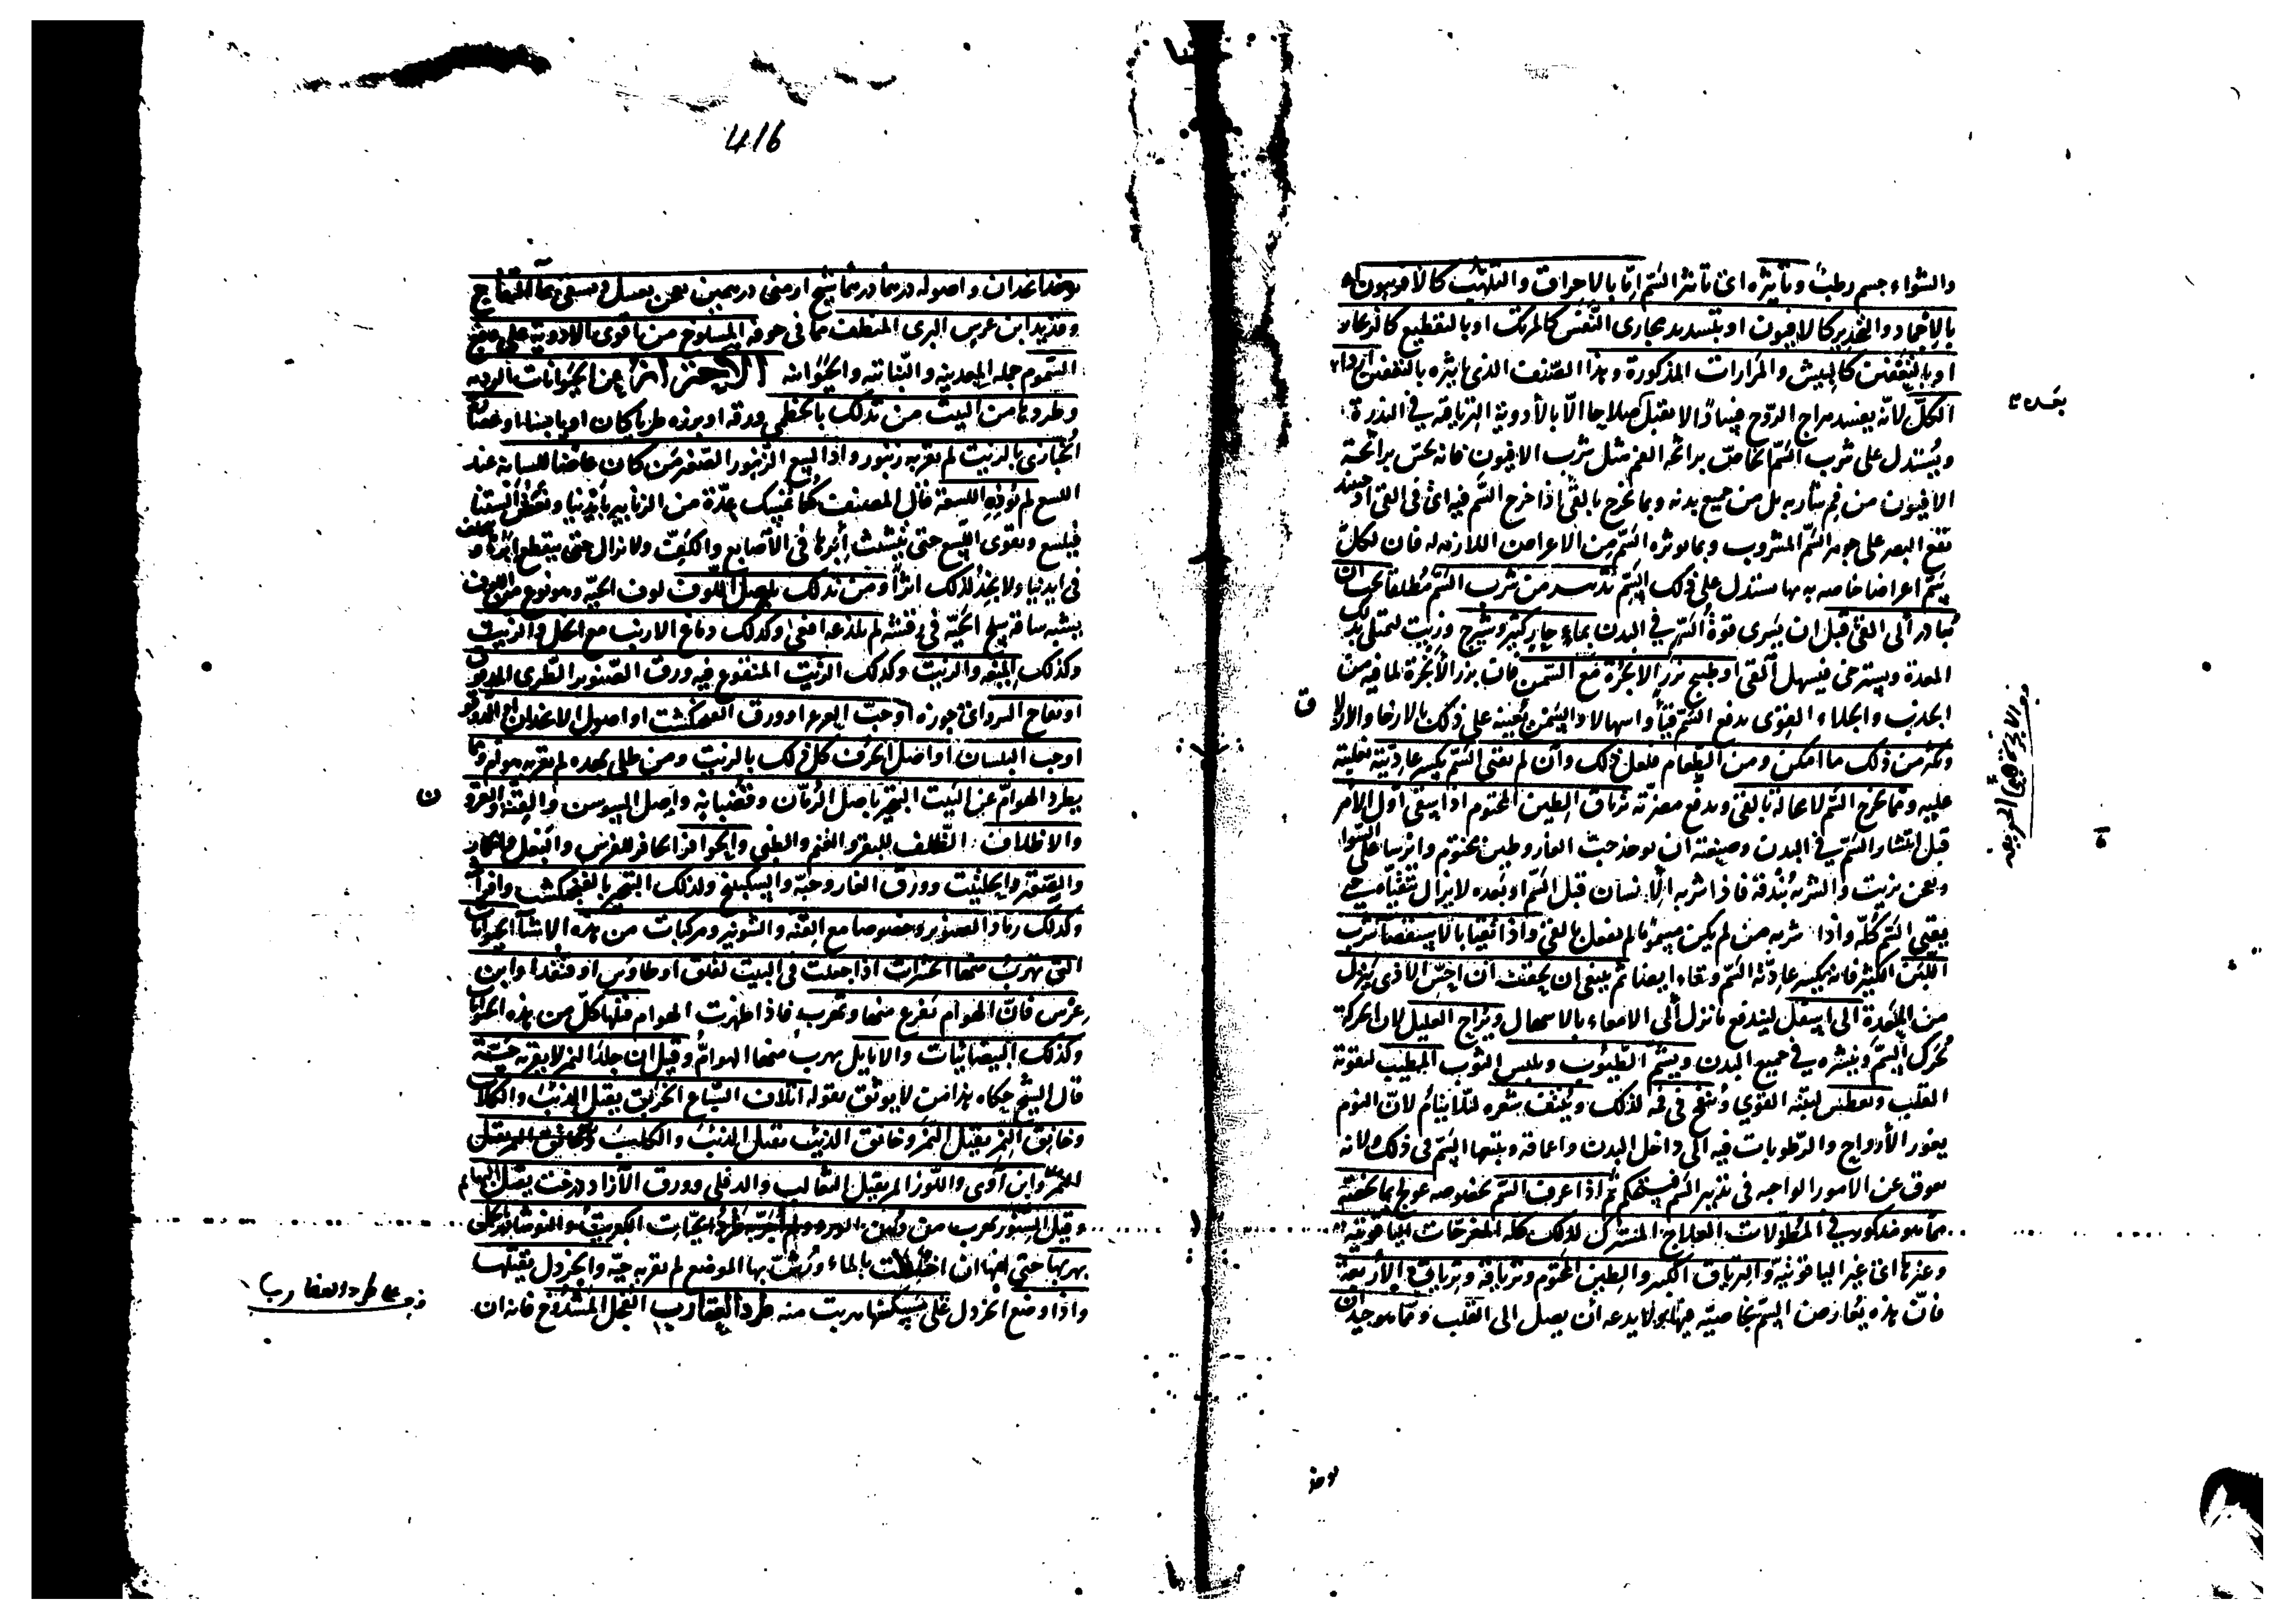 والشواء جسم رطب وتأثيره اى تأثير السم اما بالاحراق والتلهيب كالافربيون او
بالاخماد والتخدير كالافيون او بتسديد مجارى النفس كالمرتك او بالتقطيع كالزنجار
او بالتعفين كالبيش والمرارات المذكورة وهذا الصنف الذى تاثيره بالتعفين اردا
الكل لانه يفسد مزاج الروح فسادا لا يقبل صلاحا الا بالأدوية الترياقية في الندرة
ويستدل على شرب السم الخاص برائحة الفم مثل شرب الافيون فانه يحس برائحة
الافيون من فم شاربه بل من جميع بدنه وبما يخرج بالقئ اذا خرج السم فيه اى فى القئ او حينئذ
تقع البصر على جوهر السم المشروب وبما يوثره السم من الاعراض اللازمة له فان لكل
سم اعراضا خاصه به بها يستدل على ذلك السم تدبير من شرب السم مطلقا يجب ان
يبادر الى القئ قبل ان يسرى قوة السم في البدن بماء حار كثير وشيرج وزيت لتمتلى بذلك
المعدة ويسترخى فيسهل القئ او طبيخ بزر الانجرة مع السمن فان بزر الأنجرة لما فيه من
الجذب والجلاء القوى يدفع السم قيئاً واسهالا والسمن يعينه على ذلك بالارخاء والازلاق
ويكثر من ذلك ما امكن ومن الطعام فلعل ذلك وان لم يقئ السم يكسر عاديته لغلبته
عليه ومما يخرج السم لا محالة بالقئ ويدفع مضرته ترياق الطين المختوم اذا سقى أول الأمر
قبل انتشار السم في البدن وصفته ان يوخذ حب الغار وطين مختوم وايرسا على السوا
ويعجن بزيت والشربة بندقة فاذا شربه الانسان قبل السم او بعده لا يزال يتقيأه حتى
يقئ السم كله واذا شربه من لم يكن مسموما لم يفعل بالقئ واذا تقيا بالاستقصا شرب
اللبن الكثير فانه يكسر عادية السم وتقاه ايضا ثم ينبغى ان يحقن ان احس الاذى ينزل
من المعدة الى اسفل ليندفع ما نزل الى الامعاء بالاسهال ويراح العليل لان الحركة
تحرك السم وينشره في جميع البدن ويشم الطيوب ويلبس الثوب المطيب لتقوية
القلب ويعطس لتنبه القوى وينفخ فى فمه لذلك وينتف شعره لئلا ينام لان النوم
يغور الأرواح والرطوبات فيه الى داخل البدن واعماقه ويتبعها السم فى ذلك ولانه
يعوق عن الامور الواجبه فى تدبير السم ثم اذا عرف السم بخصوصه عولج بما يخصه
مما هو مذكور في المطولات العلاج المشترك لذلك كله المفرحات الياقوتية
وغيرها اى غير الياقوتية والترياق الكبير والطين المختوم وترياقه وترياق الأربعة
فان هذه يعارض السم بخاصية فيها ولا يدعه أن يصل الى القلب ومما هو جيد ان
يوخذ
416
يوخذ انجدان واصوله درهما درهما شيح ارمنى درهمين يعجن بعسل ويسقى بماء التفاح
وقديد ابن عرس البرى المنظف مما فى جوفه المسلوخ من اقوى الادوية على دفع
السموم جمله المعدنيه والنباتيه والحيوانيه الاحتراز عن الحيوانات الرديه
وطردها من البيت من تدلك بالخطمى ورقه او بزره طريا كان او يابسا او عصارة
الخبازى بالزيت لم يقربه زنبور واذا لسع الزنبور الصغير من كان عاضا للسانه عند
اللسع لم تؤذه اللسعة قال المصنف كنا نمسك عدة من الزنابير بأيدينا ونعض ألسنتنا
فيلسع ويقوى اللسع حتى ينشب أبرها فى الأصابع والكف ولا نزال حتى ينقطع أبرها
فى ايدينا ولا نجد لذلك اثرا ومن تدلك باصل اللوف لوف الحية وهو نوع من اللوف
يشبه ساقه سلخ الحية في رقشته لم يلدغه افعى وكذلك دماغ الارنب مع الخل والزيت
وكذلك الميعه والزيت وكذلك الزيت المنقوع فيه ورق الصنوبر الطرى المدقوق
او تفاح السرو اى جوزه او حب العرعر او ورق الفنجنكشت او اصول الانجدان او الدوقو
او حب البلسان او اصل الحزف كل ذلك بالزيت ومن طلى بهذه لم تقربه هوام ومما
يطرد الهوام عن البيت التبخير باصل الرمان وقضبانه واصل السوسن والقنة والقرون
والاظلاف الظلف للبقر والغنم والظبى والحوافر الحافر للفرس والبغل والحمار
والصنوبر والحلتيت وورق الغار وحبه والسكبينج ولذلك التبخير بالفنجنكشت وافراد
وكذلك رماد الصنوبر وخصوصا مع القنه والشونيز ومركبات من هذه الاشيآ الحيوانات
التى تهرب منها الحشرات اذا جعلت فى البيت لقلق او طاوس او قنفذ او ابن
عرس فان الهوام تفزع منها وتهرب فاذا ظهرت الهوام قتلها كل من هذه الحيوانات
وكذلك البيضانيات والايايل يهرب منها الهوام وقيل ان جلد النمر لا يقربه حية
قال الشيخ حكاه هذا من لا يوثق بقوله اتلاف السباع الخربق يقتل الذئب والكلاب
وخانق النمر يقتل النمر وخانق الذئب يقتل الذئب والكليب
وابن آوى واللوز المر يقتل الثعالب والدفلى وورق الآزاددرخت يقتل البهائم
وقيل السنور يهرب من دهن الورد طرد الحيات الكبريت والنوشادر كلى
يهربها حتى انها ان اختلطت بالماء ورشت بها الموضع لم تقربه حية والخردل يقتلها
واذا وضع الخردل على مسكنها هربت منه طرد العقارب الفجل المشدوخ فانه ان
طرد العقارب